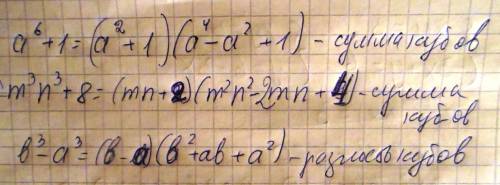 a⁶+1=(a²+1)(a⁴-a²+1) - сумма кубов
m³n³+8=(mn+2)(m²n²-2mn+4) - сумма
кубов
в³-a³=(в-a)(в²+aв+a²) - разность кубов